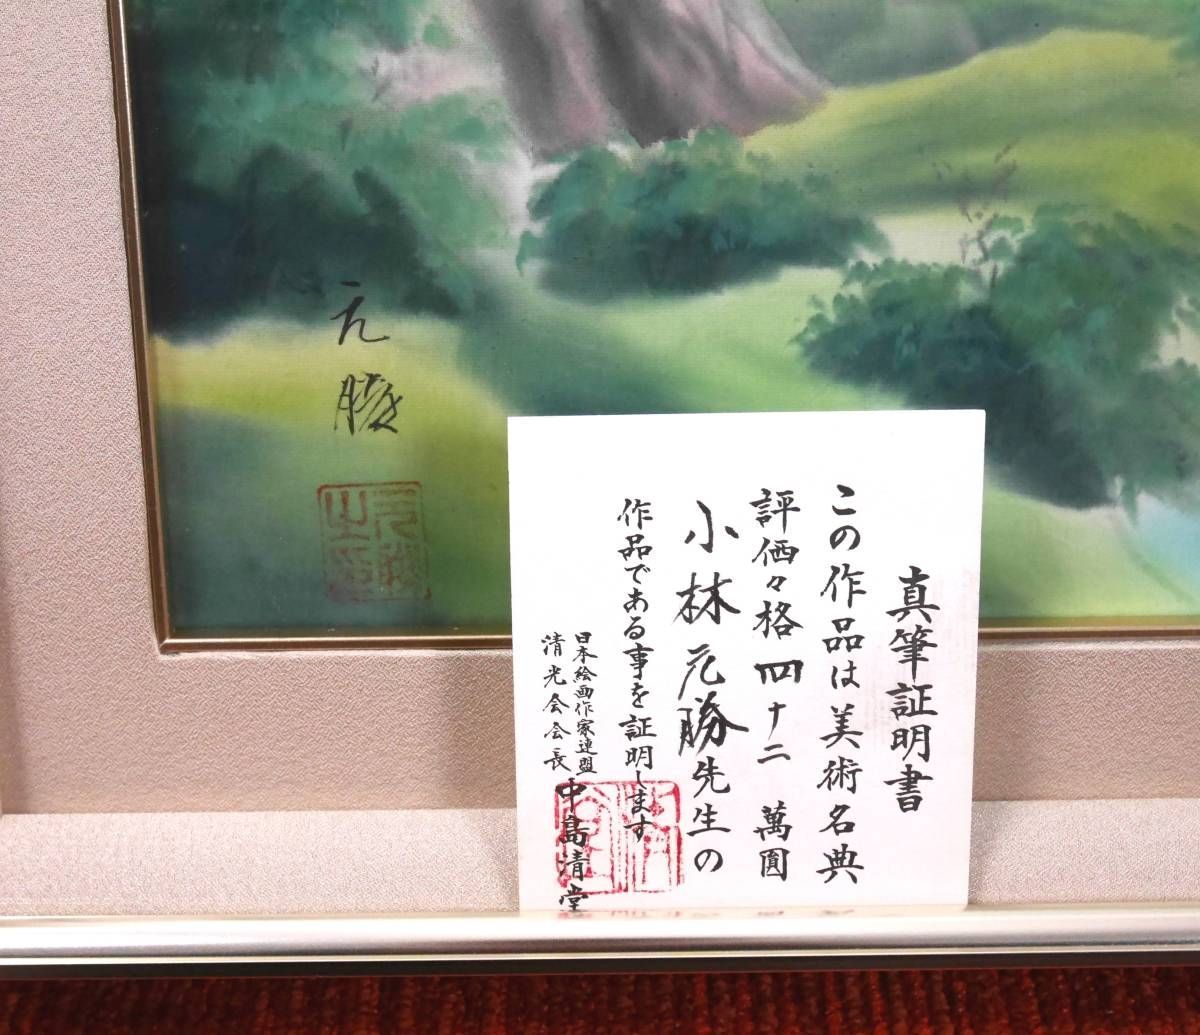 元
勝
真筆証明書
この作品は美術名典
評価々格四十二萬圓
小林元勝先生の
作品である事を証明します
日本絵画作家連盟
清光会会長
中島清堂